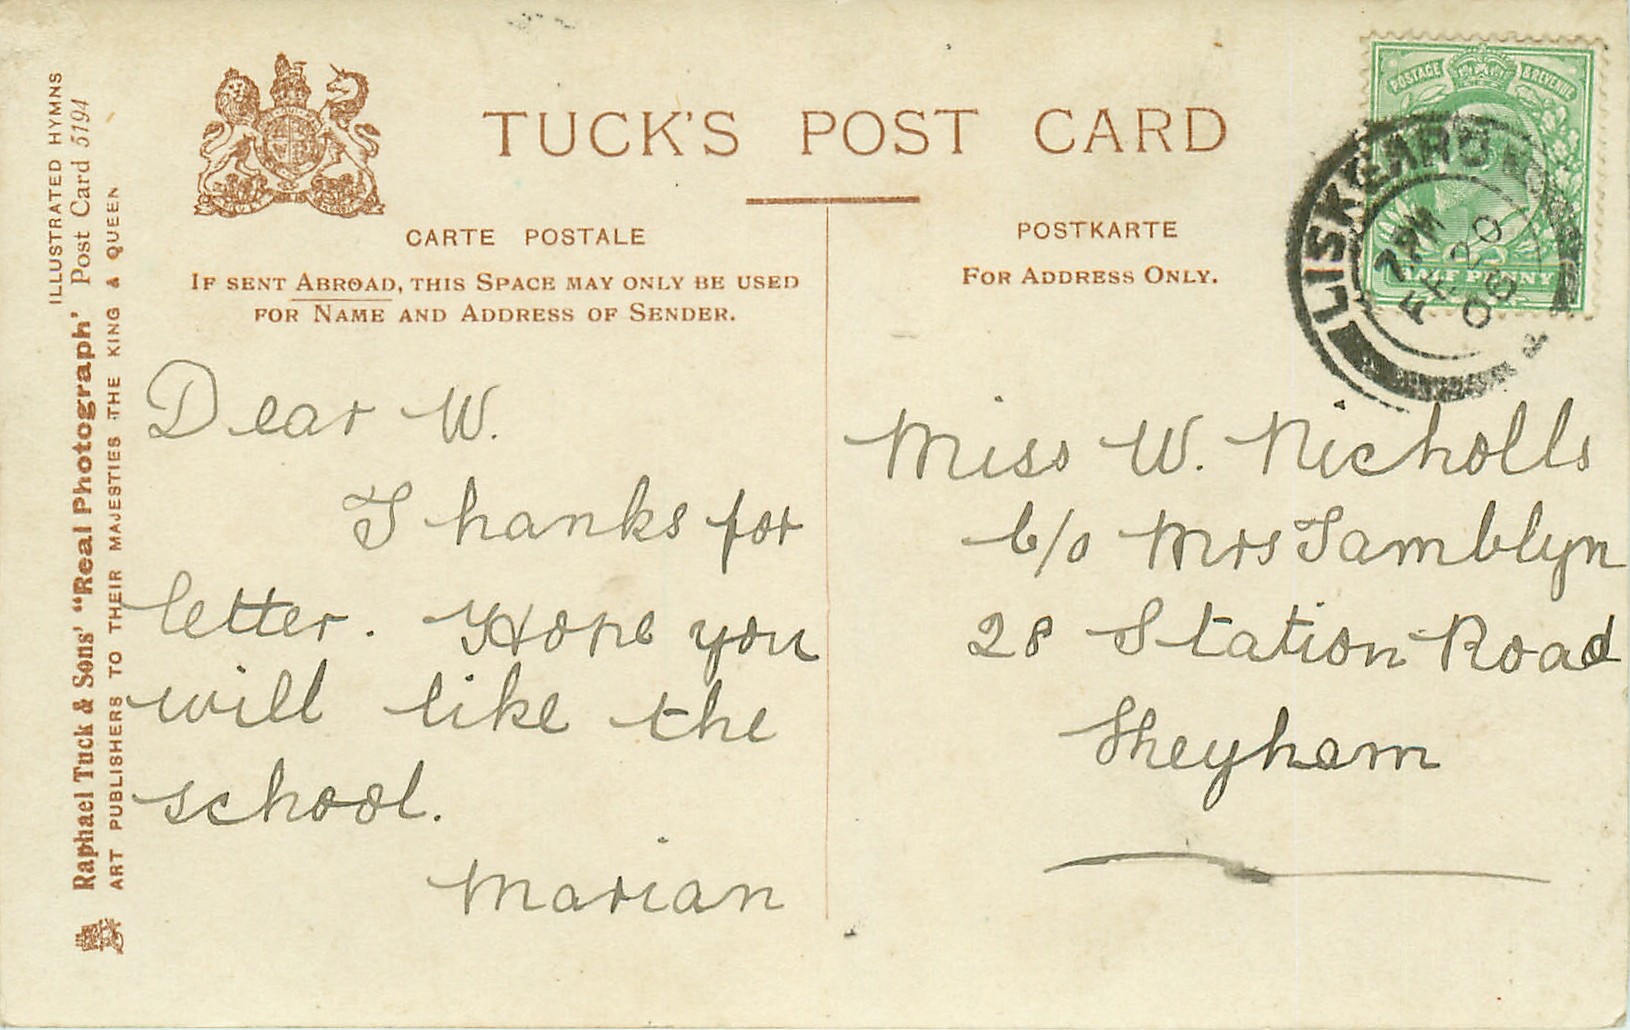 ILLUSTRATED HYMNS
Raphael Tuck & Sons' "Real Photograph' Post Card 5194
ART PUBLISHERS TO THEIR MAJESTIES THE KING & QUEEN
TUCK'S POST CARD
CARTE POSTALE
IF SENT ABROAD, THIS SPACE MAY ONLY BE USED
FOR NAME AND ADDRESS OF SENDER.
POSTKARTE
FOR ADDRESS ONLY.
POSTAGE & REVENUE
HALF PENNY
LISKEARD
7 PM
FE 20
05
Dear W.
Thanks for
letter. Hope you
will like the
school.
Marian
Miss W. Nicholls
c/o Mrs Tamblyn
28 Station Road
Sheyham